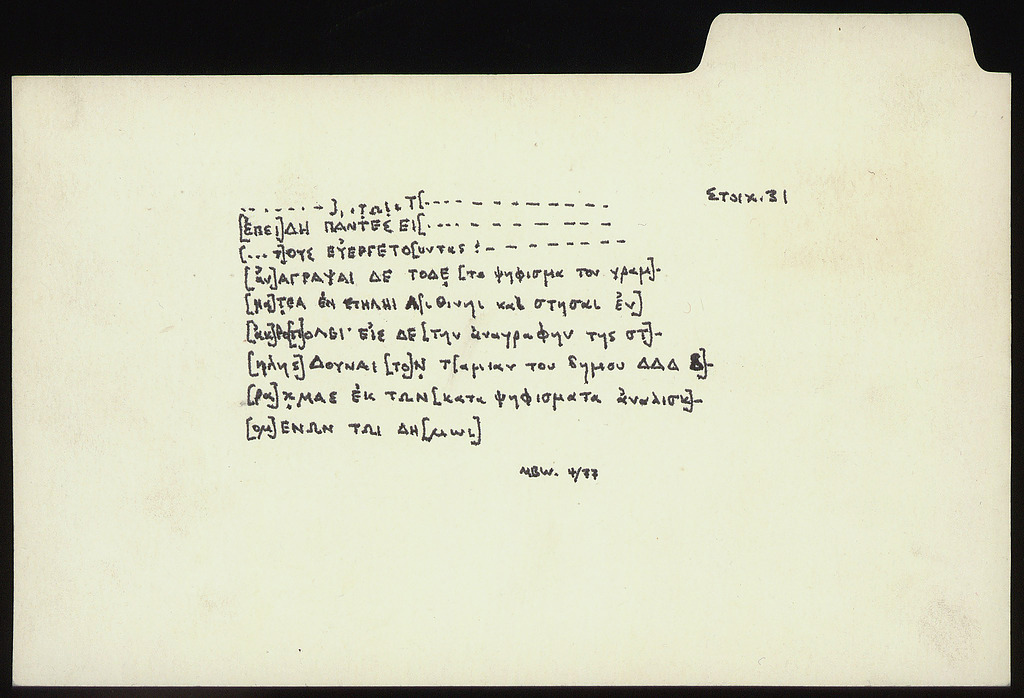 ΣΤΟΙΧ. 31
- - - - - - -], . . τωι . Τ[- - - - - - - - - - -
[ἐπει]ΔΗ ΠΑΝΤΕΣ ΕΙ[- - - - - - - - - -
[...τ]ΟΥΣ ΕΥ̓ΕΡΓΕΤΟ[υντας : - - - - - - -
[ἀν]ΑΓΡΑΨΑΙ ΔΕ ΤΟΔΕ̣ [το ψηφισμα τον γραμ]-
[μα]Τ̣ΕΑ ἐΝ ΣΤΗΛΗΙ Λ[ιθινηι και στησαι ἐν]
[ἀκ]ρο[π]ΟΛΕΙ· ΕἰΣ ΔΕ [την ἀναγραφην της στ]-
[ηλης] ΔΟΥΝΑΙ [το]Ν̣ Τ[αμιαν του δημου ΔΔΔ δ]-
[ρα]χ̣ΜΑΣ ἐΚ ΤΩΝ [κατα ψηφισματα ἀναλισκ]-
[ομ]ΕΝΩΝ ΤΩΙ ΔΗ[μωι]
MBW. 4/77